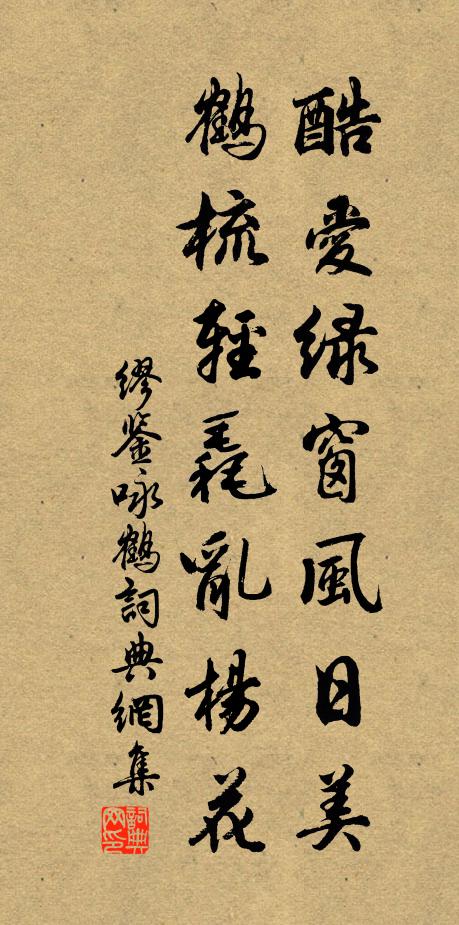 酷愛綠窗風日美
鶴梳輕毳亂楊花
繆鑒咏鶴詞典網集
詞典网印